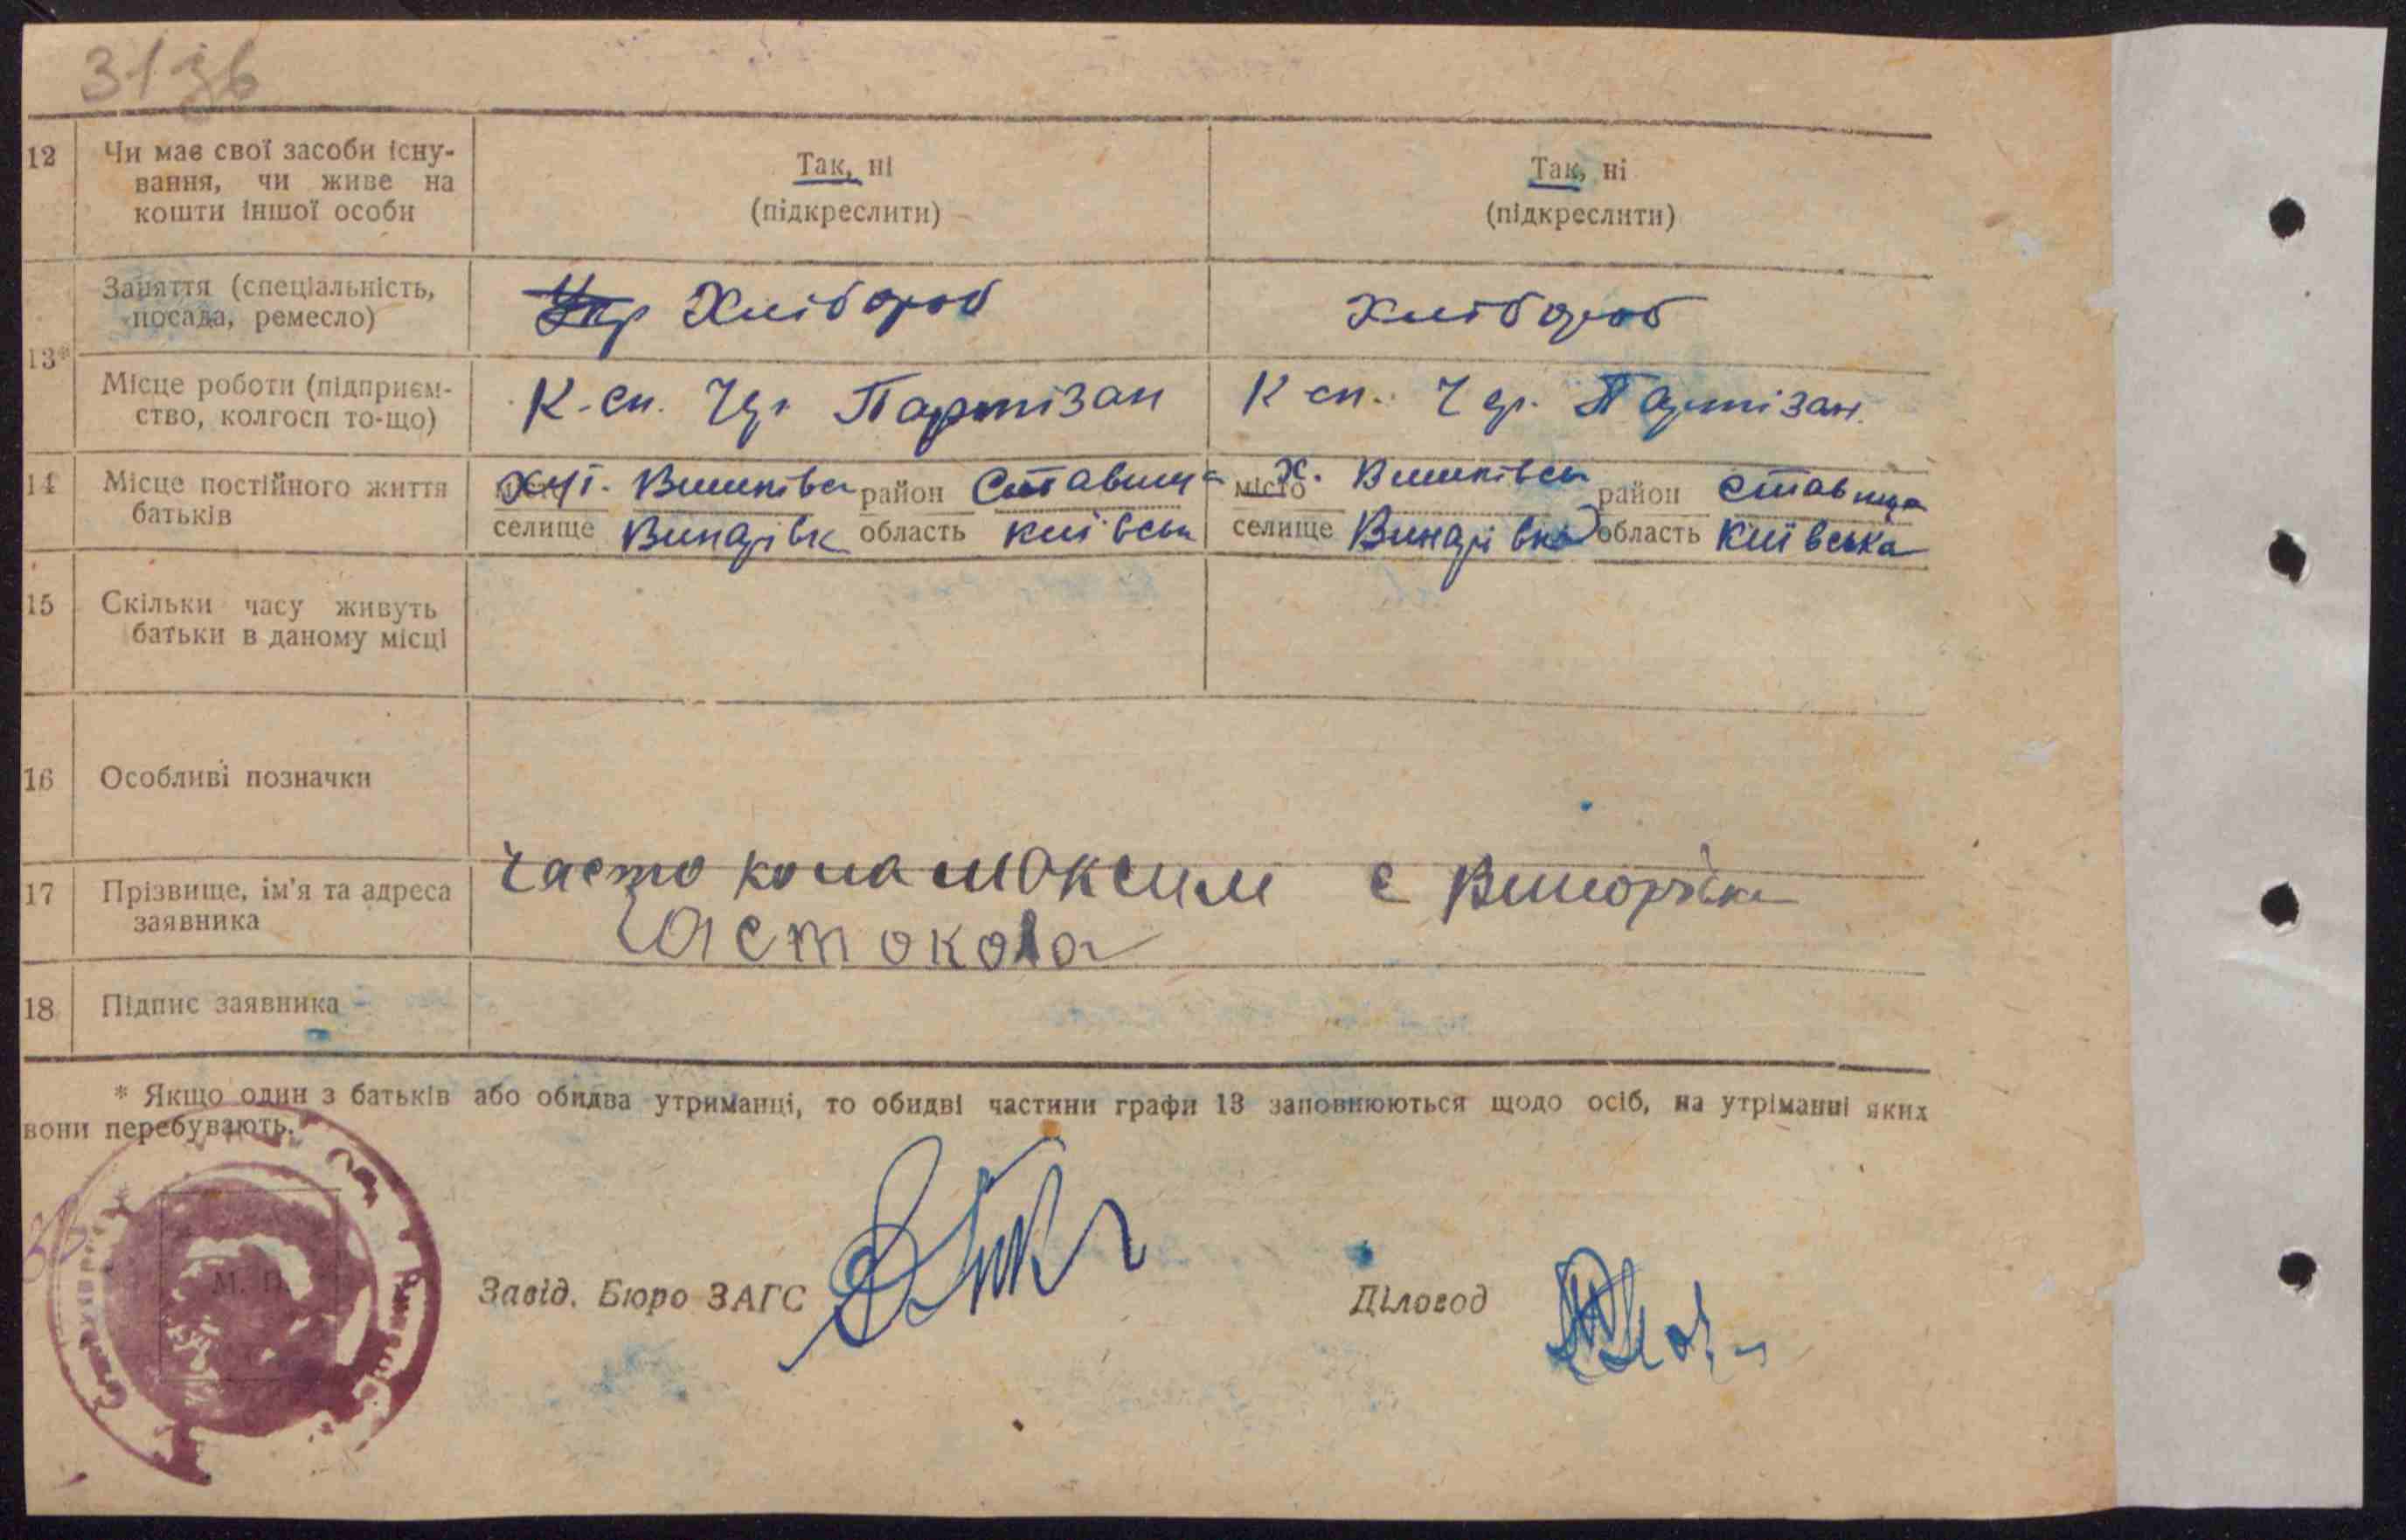 31зв
12 Чи має свої засоби існу-
вання, чи живе на
кошти іншої особи
Так, ні
(підкреслити)
Так, ні
(підкреслити)
13*
Заняття (спеціальність,
посада, ремесло)
Укр Хлібороб
Хлібороб
Місце роботи (підприєм-
ство, колгосп то-що)
К-сп. Чер. Партізан
К сп. Чер. Партізан.
14 Місце постійного життя
батьків
район Ставищ
селище Винарівк область Київськ
місто х. район Ставище
селище Винарівка область Київська
15 Скільки часу живуть
батьки в даному місці
16 Особливі позначки
17 Прізвище, ім'я та адреса
заявника
Частокола Максим с
Частокола
18 Підпис заявника
* Якщо один з батьків або обидва утриманці, то обидві частини графи 13 заповнюються щодо осіб, на утріманні яких
вони перебувають.
М. П.
Завід. Бюро ЗАГС
Діловод